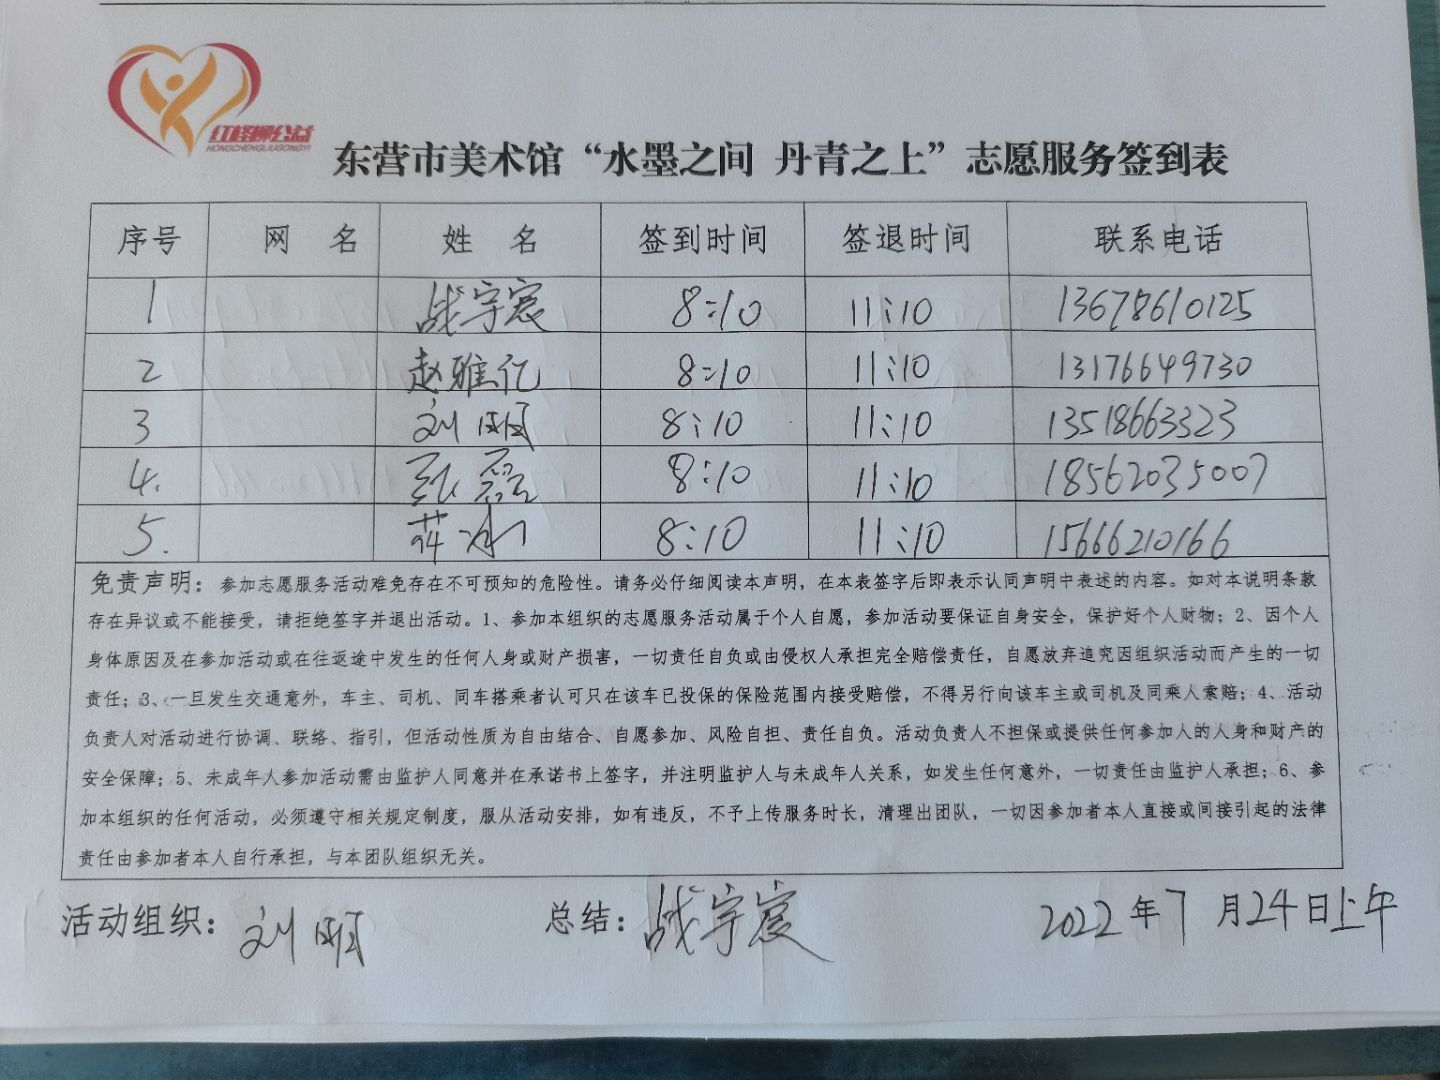 红柽柳公益
HONGCHENGLIUGONGYI
东营市美术馆“水墨之间 丹青之上”志愿服务签到表
序号 网 名 姓 名 签到时间 签退时间 联系电话
1 战宇宸 8:10 11:10 13678610125
2 赵雅亿 8:10 11:10 13176649730
3 刘 8:10 11:10 13518663323
4. 张磊 8:10 11:10 18562035007
5. 蒋冰 8:10 11:10 15666210166
免责声明：参加志愿服务活动难免存在不可预知的危险性。请务必仔细阅读本声明，在本表签字后即表示认同声明中表述的内容。如对本说明条款
存在异议或不能接受，请拒绝签字并退出活动。1、参加本组织的志愿服务活动属于个人自愿，参加活动要保证自身安全，保护好个人财物；2、因个人
身体原因及在参加活动或在往返途中发生的任何人身或财产损害，一切责任自负或由侵权人承担完全赔偿责任，自愿放弃追究因组织活动而产生的一切
责任；3、一旦发生交通意外，车主、司机、同车搭乘者认可只在该车已投保的保险范围内接受赔偿，不得另行向该车主或司机及同乘人索赔；4、活动
负责人对活动进行协调、联络、指引，但活动性质为自由结合、自愿参加、风险自担、责任自负。活动负责人不担保或提供任何参加人的人身和财产的
安全保障；5、未成年人参加活动需由监护人同意并在承诺书上签字，并注明监护人与未成年人关系，如发生任何意外，一切责任由监护人承担；6、参
加本组织的任何活动，必须遵守相关规定制度，服从活动安排，如有违反，不予上传服务时长，清理出团队，一切因参加者本人直接或间接引起的法律
责任由参加者本人自行承担，与本团队组织无关。
活动组织：刘 总结：战宇宸 2022年7月24日上午